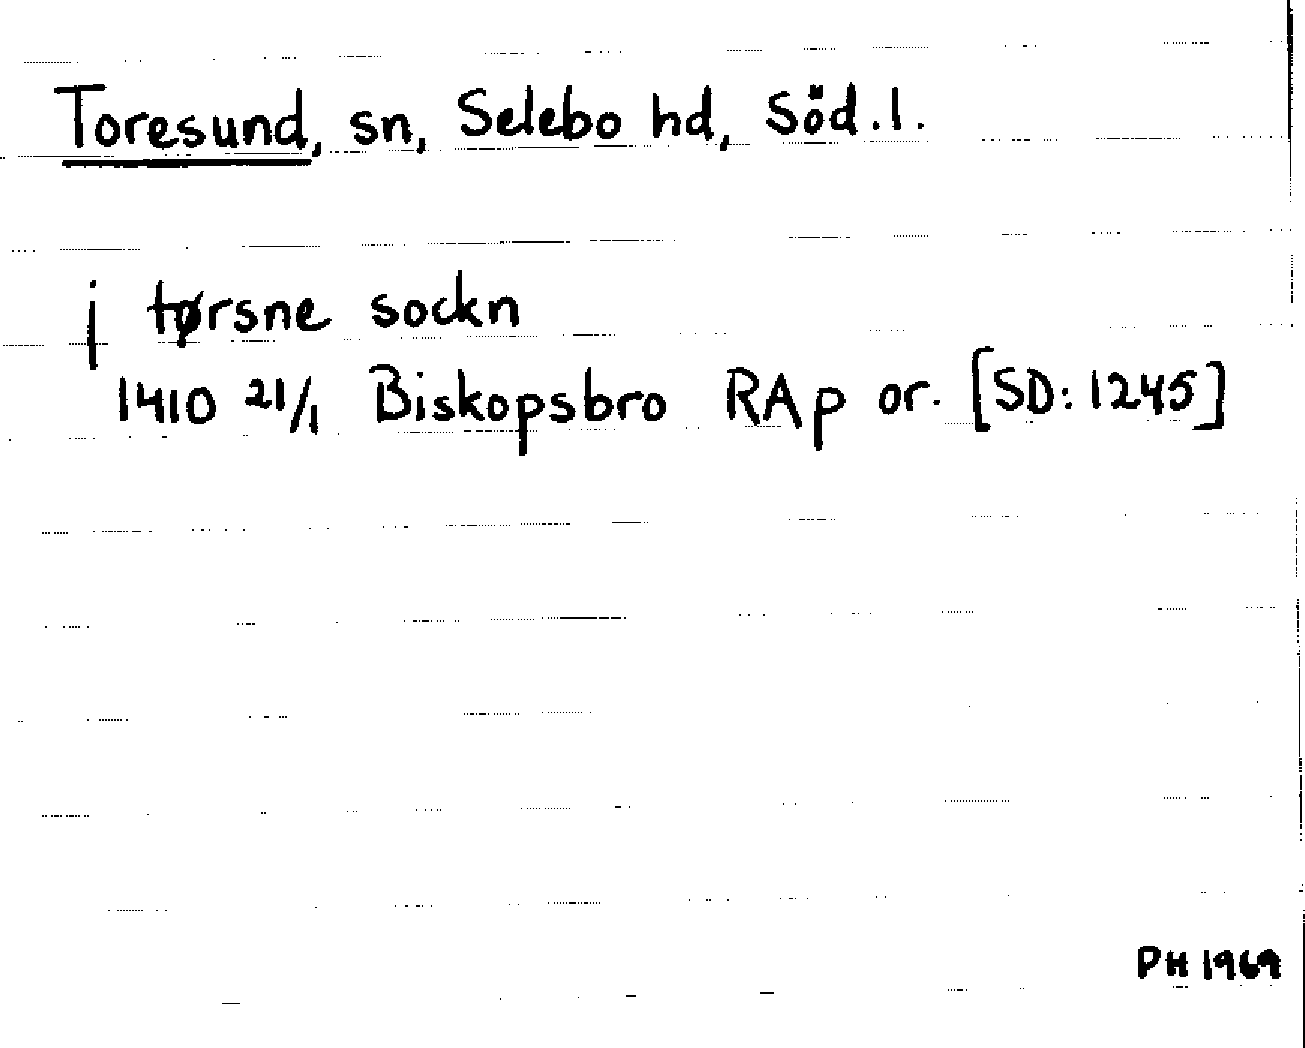 Toresund, sn, Selebo hd, Söd.l.
j tørsne sockn
1410 21/1 Biskopsbro RAp or. [SD: 1245]
PH 1969